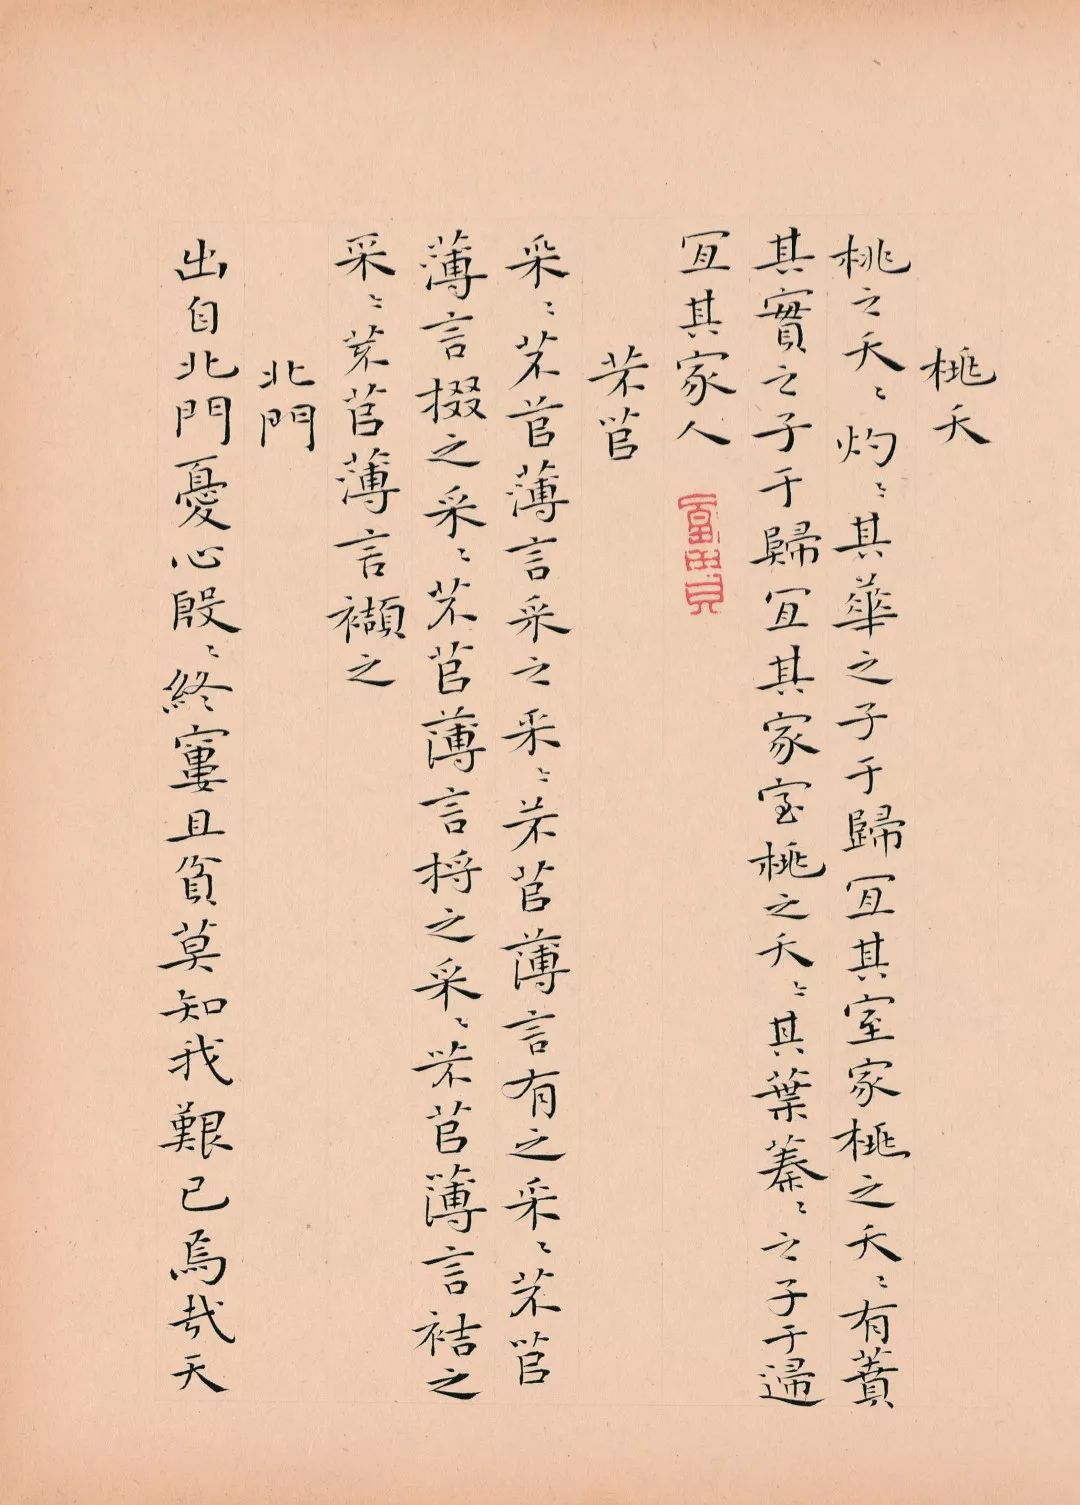 桃夭
桃之夭〻灼〻其華之子于歸宜其室家桃之夭〻有蕡
其實之子于歸宜其家室桃之夭〻其葉蓁〻之子于歸
宜其家人
芣苢
采〻芣苢薄言采之采〻芣苢薄言有之采〻芣苢
薄言掇之采〻芣苢薄言捋之采〻芣苢薄言袺之
采〻芣苢薄言襭之
北門
出自北門憂心殷〻終窶且貧莫知我艱已焉哉天